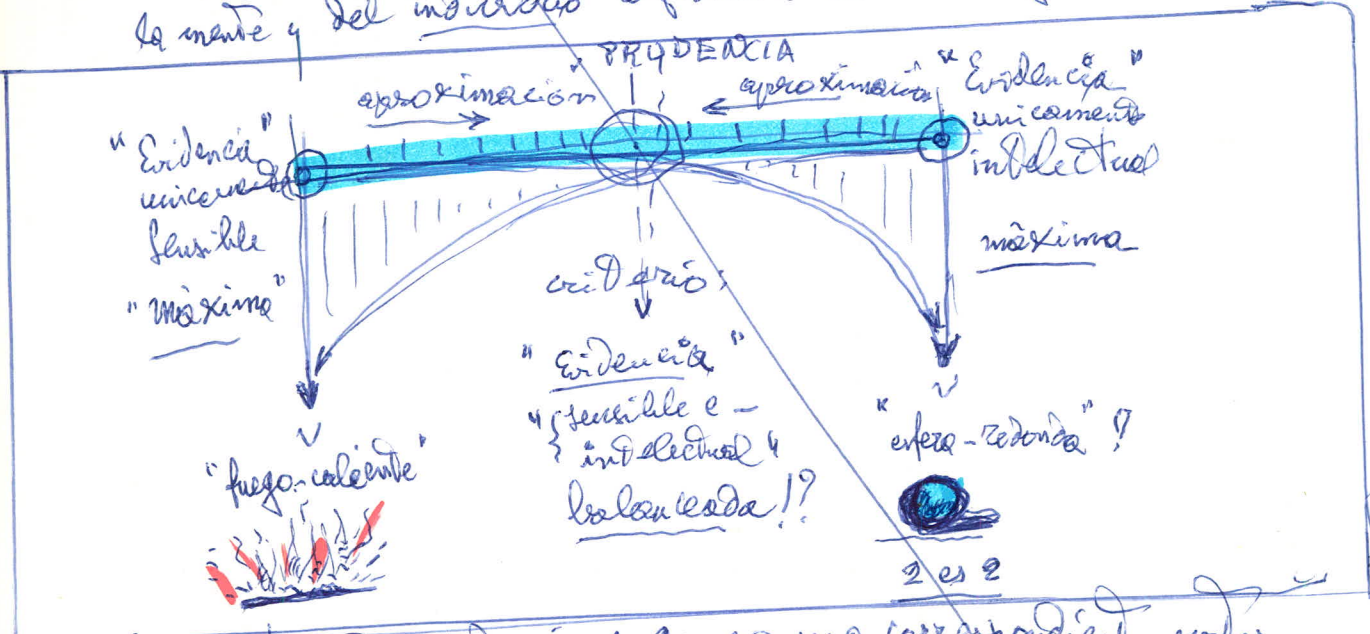 la mente y del individuo
PRUDENCIA
aproximación
aproximación
"Evidencia"
unicamente
sensible
"máxima"
"Evidencia"
unicamente
intelectual
máxima
criterio:
"Evidencia"
"sensible e -
intelectual"
balanceada!?
"fuego-caliente"
"esfera-redonda"?
2 es 2